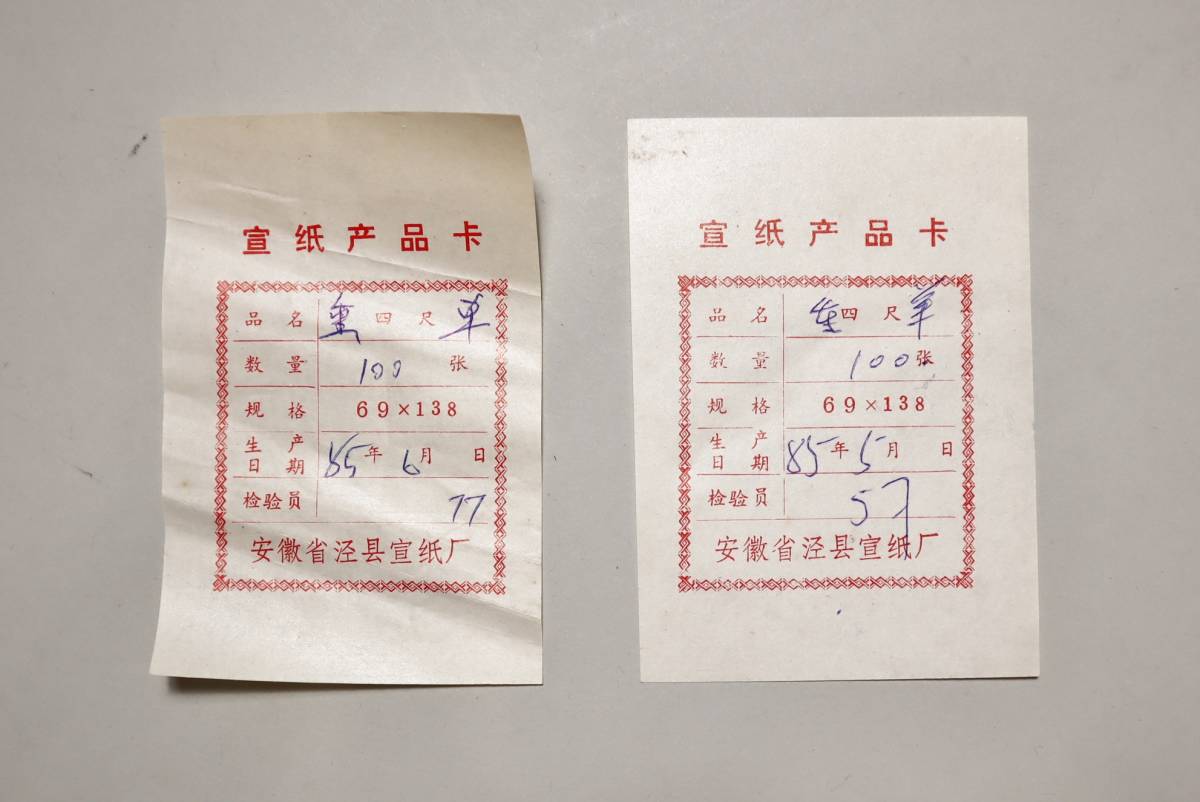 宣纸产品卡
品名 重四尺单
数量 100张
规格 69×138
生产日期 85年6月 日
检验员 77
安徽省泾县宣纸厂
宣纸产品卡
品名 重四尺单
数量 100张
规格 69×138
生产日期 85年5月 日
检验员 57
安徽省泾县宣纸厂